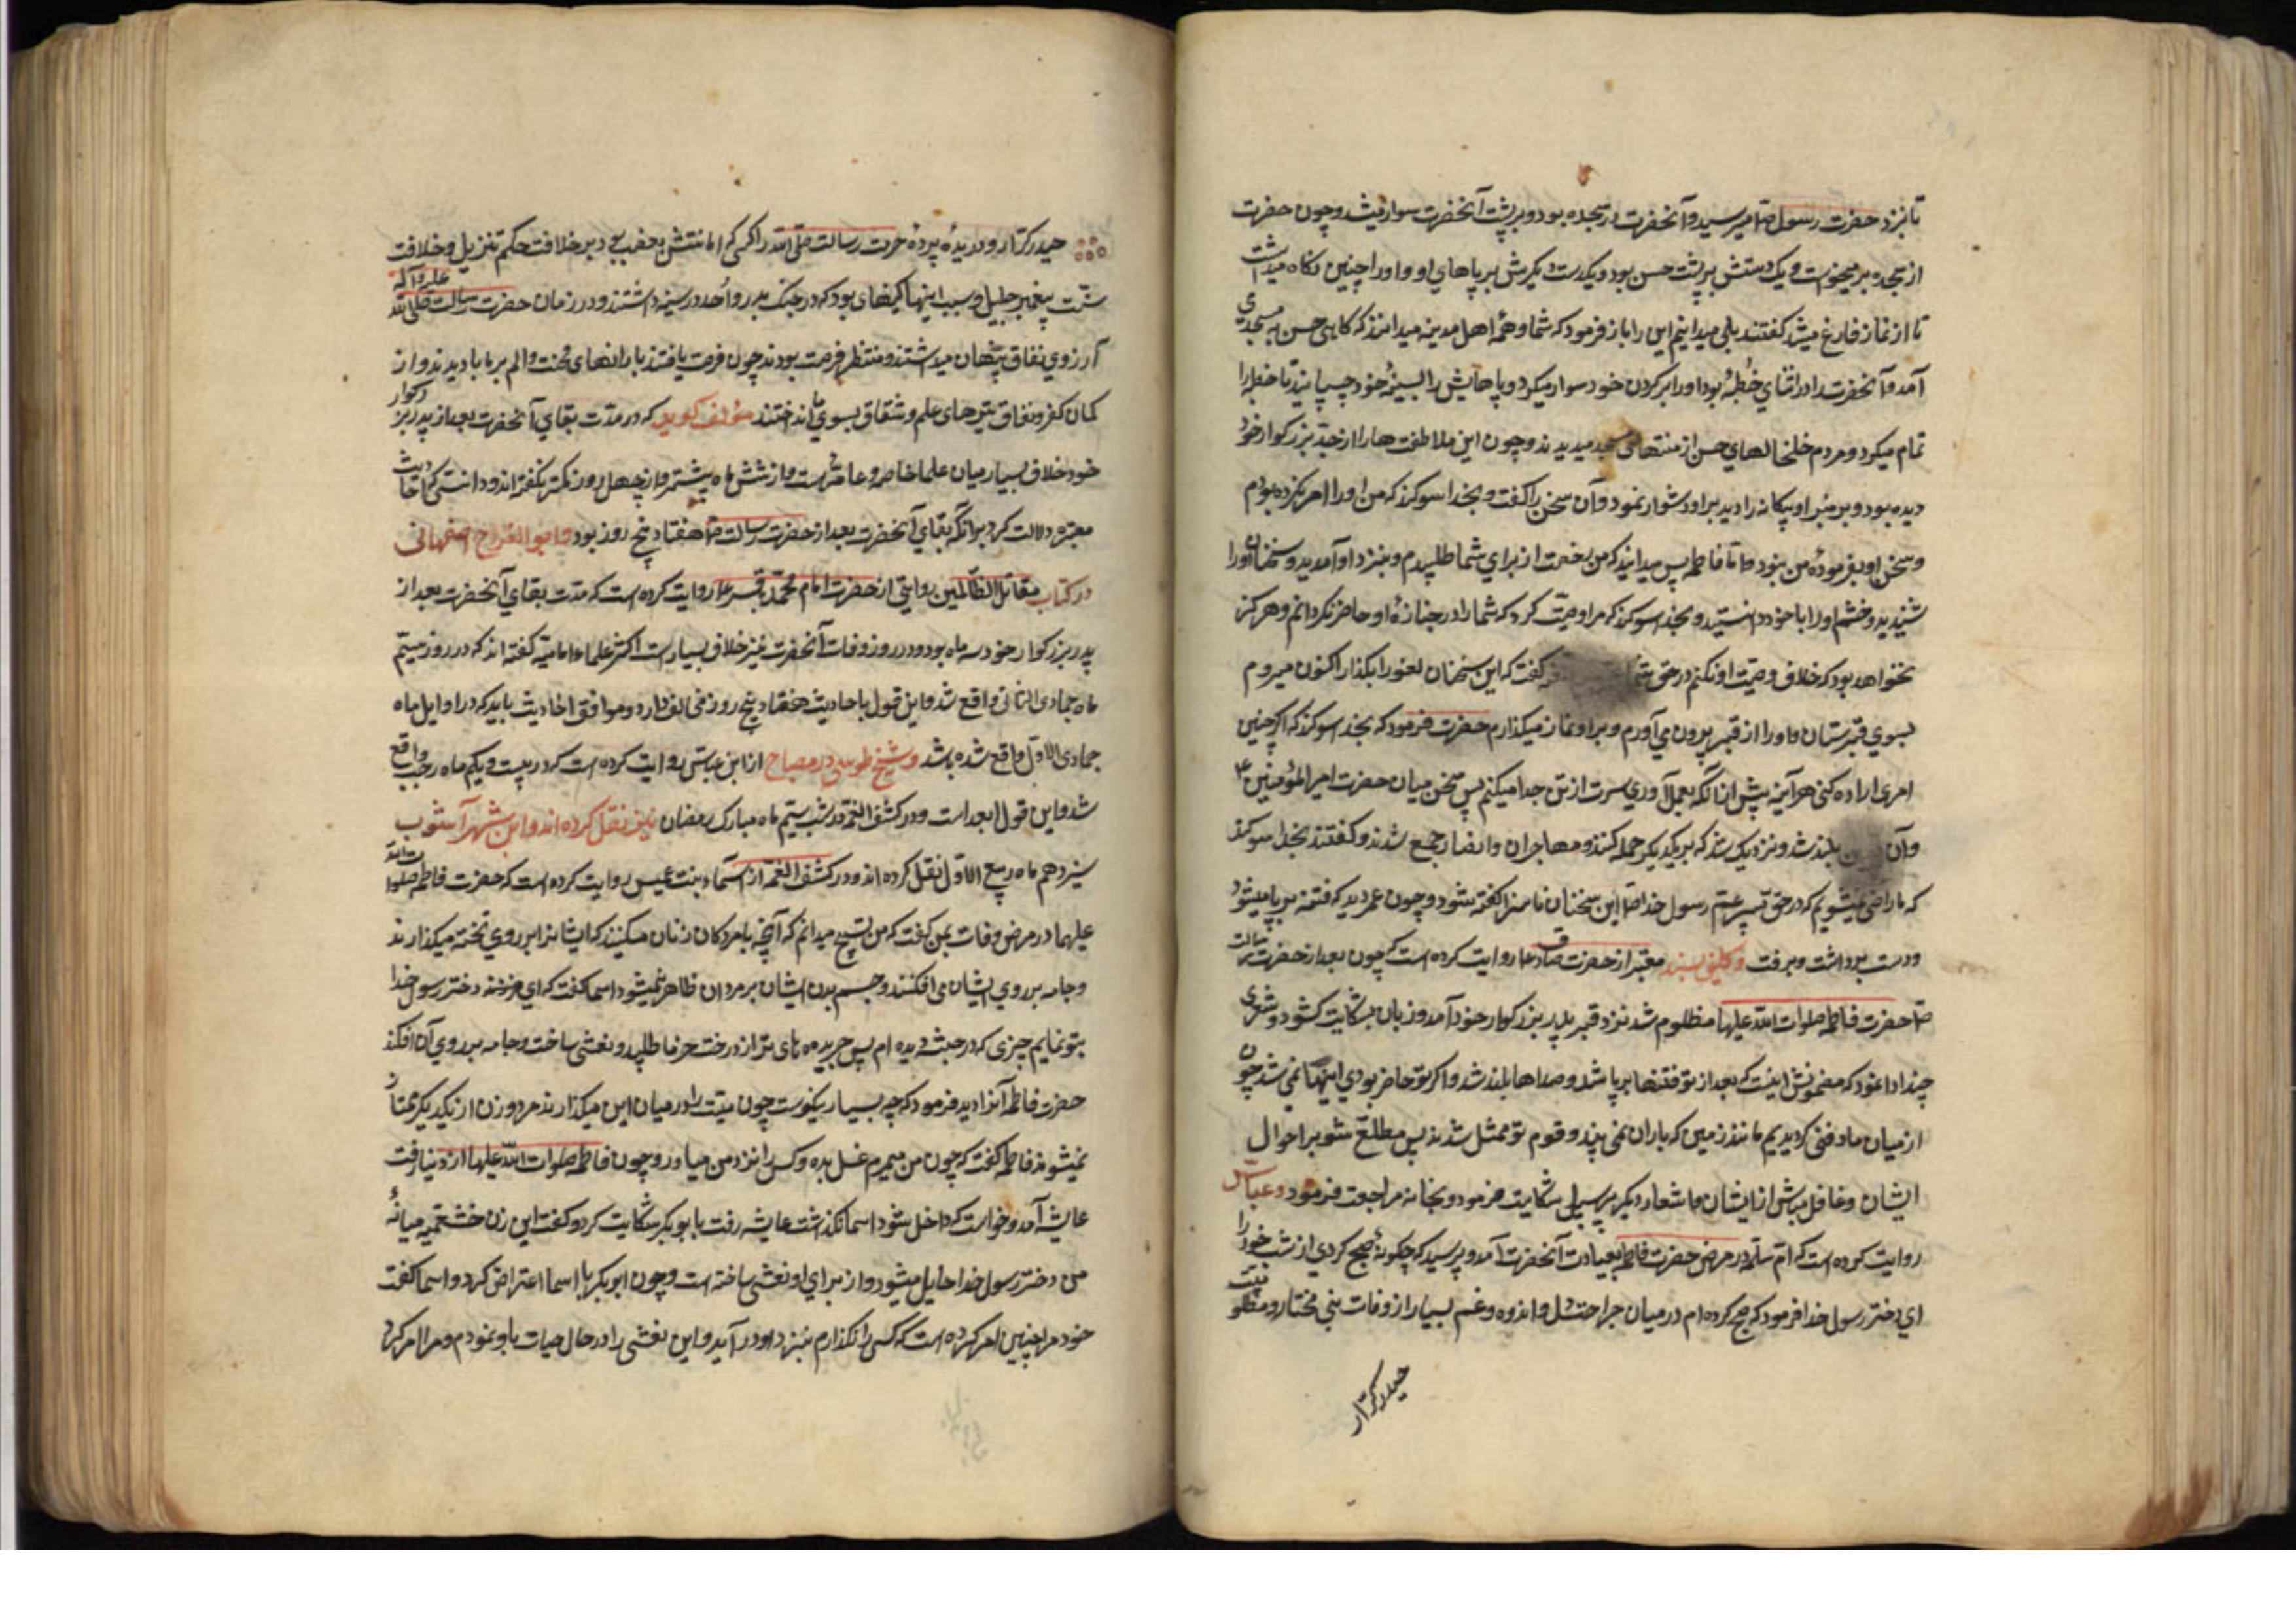 تا بنزد حضرت رسول ص میرسید و آنحضرت در سجده بود و بر پشت آنحضرت سوار میشد و چون حضرت
از سجده بر میخواست و یک دستش بر پشت حسن بود و یکدست دیکرش بر پاهای او و او را چنین نکاه میداشت
تا از نماز فارغ میشد کفتند بلی میدانیم این را باز فرمود که شما و همهٔ اهل مدینه میدانند که کاهی حسن به مسجدی
آمد و آنحضرت را در اثنای خطبهٔ بود او را بر کردن خود سوار میکرد و پاهایش را بسینهٔ خود چسپانید تا خطبه را
تمام میکرد و مردم خلخالهای حسن از منتهای مسجد میدیدند و چون این ملاطفت ها را از جد بزرکوار خود
دیده بود و بر منبر او بیکانه را دید بر او دشوار نمود و آن سخن را کفت و بخدا سوکند که من او را امر نکرده بودم
و سخن او بفرمودهٔ من نبود و اما فاطمه پس میدانید که من رخصت از برای شما طلبیدم و بنزد او آمدید و سخنان او را
شنیدید و خشم او را با خود دانستید و بخدا سوکند که مرا وصیت کرد که شما را در جنازهٔ او حاضر نکردانم و هرکز
نخواهد بود که خلاف وصیت او نکنم در حق شما کفت که این سخنان لغو را بکذار اکنون میروم
بسوی قبرستان و او را از قبر بیرون می آورم و بر او نماز میکذارم حضرت فرمود که بخدا سوکند که اکر چنین
امری اراده کنی هر آینه پیش از آنکه بعمل آوری سرت از تن جدا میکنم پس سخن میان حضرت امیر المؤمنین ع
و آن بلند شد و نزدیک شد که بر یکدیکر حمله کنند و مهاجران و انصار جمع شدند و کفتند بخدا سوکند
که ما راضی نمیشویم که در حق پسر عم رسول خدا ص این سخنان ناسزا کفته شود و چون عمر دید که فتنه بر پا میشود
و دست برداشت و برفت و کلینی بسند معتبر از حضرت صادق ع روایت کرده است که چون بعد از حضرت رسالت
ص حضرت فاطمه صلوات الله علیها مظلوم شد نزد قبر پدر بزرکوار خود آمد و زبان بشکایت کشود و شعری
چند ادا نمود که مضمونش اینست که بعد از تو فتنها بر پا شد و صداها بلند شد و اکر تو حاضر بودی اینها نمی شد چون
از میان ما دفن کردیدیم مانند زمین که باران نمی بیند و قوم تو ممثل شدند پس مطلع شو بر احوال
ایشان و غافل مباش از ایشان و اشعار دیکر بر سبیل شکایت فرمود و بخانه مراجعت فرمود و عیاشی
روایت کرده است که ام سلمه در مرض حضرت فاطمه بعیادت آنحضرت آمد و پرسید که چکونه صبح کردی از شب خود را
ای دختر رسول خدا فرمود که صبح کرده ام در میان جراحت دل و اندوه و غم بسیار از وفات نبی مختار و مظلومیت
حیدر کرار
حیدر کرار و دریدهٔ پردهٔ حرمت رسالت صلی الله را کسی که امامتش بغصب بردند بر خلافت حکم تنزیل و خلافت
علیه و آله
سنت پیغمبر جلیل و سبب اینها کینهای بود که در جنک بدر و أحد در سینه داشتند و در زمان حضرت رسالت صلی الله
آرزوی نفاق پنهان میداشتند و منتظر فرصت بودند چون فرصت یافتند بارانهای محنت و الم بر ما بادیدند و از
کمان کفر و نفاق تیرهای ظلم و شقاق بسوی ما انداختند مؤلف کوید که در مدت بقای آنحضرت بعد از پدر بزرکوار
خود خلاف بسیار میان علما خاصه و عامه است و از شش ماه بیشتر و از چهل روز کمتر نکفته اند و دانستی که احادیث
معتبره دلالت کرد بر آنکه بقای آنحضرت بعد از حضرت رسالت ص هفتاد پنج روز بود و ابو الفرج اصفهانی
در کتاب مقاتل الظالمین روایتی از حضرت امام محمد باقر ع روایت کرده است که مدت بقای آنحضرت بعد از
پدر بزرکوار خود سه ماه بود و در روز وفات آنحضرت نیز خلاف بسیار است اکثر علماء امامیه کفته اند که در روز سیم
ماه جمادی الثانی واقع شد و این قول با احادیث هفتاد پنج روز مخالف دارد و موافق احادیث باید که در اوایل ماه
جمادی الاول واقع شده باشد و شیخ طوسی در مصباح از ابن عباس روایت کرده است که در بیست و یکم ماه رجب واقع
شد و این قول ابعد است و در کشف الغمه در شب سیم ماه مبارک رمضان نیز نقل کرده اند و ابن شهر آشوب
سیزدهم ماه ربیع الاول نقل کرده اند و در کشف الغمه از اسماء بنت عمیس روایت کرده است که حضرت فاطمه صلوات الله
علیها در مرض وفات بمن کفت که من قبیح میدانم که آنچه با مردکان زنان میکنند که ایشانرا بر روی تخته میکذارند
و جامه بر روی ایشان می افکنند و جسم بدن ایشان بر مردان ظاهر میشود اسما کفت که ای فرزند دختر رسول خدا
بتو نمایم چیزی که در حبشه دیده ام پس جریده های تر از درخت خرما طلبید و نعشی ساخت و جامه بر روی آن افکند
حضرت فاطمه آنرا دید فرمود که چه بسیار نیکوست چون میت را در میان این میکذارند مرد و زن از یکدیکر ممتاز
نمیشوند فاطمه کفت که چون من بمیرم غسل بده و کسی را نزد من میاور و چون فاطمه صلوات الله علیها از دنیا رفت
عایشه آمد و خواست که داخل شود اسما نکذاشت عایشه رفت با ابو بکر شکایت کرد و کفت این زن خشعمیه میانهٔ
من و دختر رسول خدا حایل میشود و از برای او نعشی ساخته است و چون ابو بکر با اسما اعتراض کرد و اسما کفت
خود مرا چنین امر کرده است که کسی را نکذارم بنزد او در آید و این نعشی را در حال حیات باو نمودم و مرا امر کرد